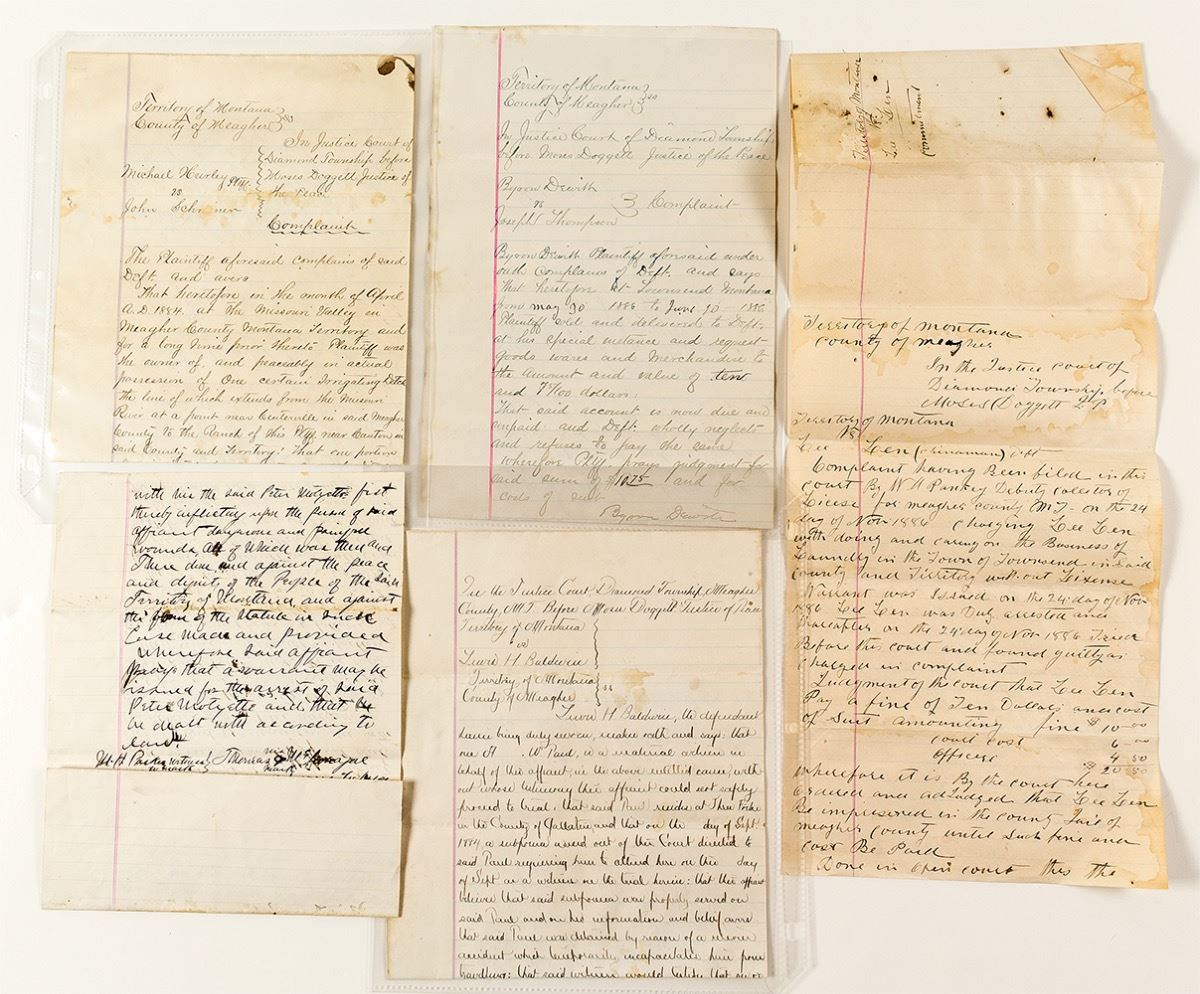 Territory of Montana
County of Meagher
In Justice Court of
Diamond Township before
Moses Doggett Justice of
the Peace
Michael Hurley Plff.
vs
John Schriner
Complaint
The Plaintiff aforesaid complains of said
Deft. and avers
That heretofore in the month of April
A.D. 1884. at the Missouri Valley in
Meagher County Montana Territory and
for a long time prior thereto Plaintiff was
the owner of, and peaceably in actual
possession of One certain Irrigating Ditch
the line of which extends from the Missouri
River at a point near Centerville in said Meagher
County to the Ranch of this Plff near Canton in
said County and Territory: That one portion
with his the said Peter fist
thereby inflicting upon the person of said
affiant dangerous and painful
wounds, All of which was then and
There done and against the peace
and dignity of the People of the said
Territory of Montana, and against
the form of the Statute in such
Case made and provided
Wherefore said affiant
prays that a warrant may be
issued for the arrest of said
Peter and that he
be dealt with according to
law.
witness Thomas
mark
Territory of Montana
County of Meagher ss
In Justice Court of Diamond Township
before Moses Doggett Justice of the Peace
Byron Dewith
vs Complaint
Joseph Thompson
Byron Dewith Plaintiff aforesaid under
oath Complains of Deft. and says
That heretofore at Townsend Montana
from may 30 1886 to June 30 1886
Plaintiff sold and delivered to Deft.
at his special instance and request
Goods wares and Merchandise to
the amount and value of ten
and 75/100 dollars:
That said account is now due and
unpaid and Deft. wholly neglects
and refuses to pay the same
Wherefore Plff. prays judgment for
said sum of $10.75 and for
costs of suit
Byron Dewith
In the Justice Court, Diamond Township, Meagher
County, M.T. Before Moses Doggett Justice of Peace
Territory of Montana
vs
Lewis H Baldwin
Territory of Montana
County of Meagher ss
Lewis H. Baldwin, the defendant
herein being duly sworn, makes oath and says: that
one A W Paul, is a material witness in
behalf of this affiant, in the above entitled cause, with-
out whose testimony this affiant could not safely
proceed to trial; that said Paul resides at Three Forks
in the County of Gallatin, and that on the day of Sept.
1884 a subpoena issued out of this Court directed to
said Paul requiring him to attend here on this day
of Sept as a witness on the trial herein: that this affiant
believes that said subpoena was properly served on
said Paul and on his information and belief avers
that said Paul was detained by reason of a
accident which temporarily incapacitates him from
travelling: that said witness would testify that
Territory of Montana
vs
Lee Len
Commitment
Territory of Montana
County of Meagher
In the Justice court of
Diamond Township before
Moses Doggett J P
Territory of Montana
vs
Lee Len (Chinaman) Deft
Complaint having Been filed in this
court By W H Pankey Deputy collector of
Licese for meagher county (M T) on the 24
day of Nov 1886 charging Lee Len
with doing and caring on the Business of
Laundry in the Town of Townsend in said
county and Territory without Lisense
Warrant was Issued on the 24 day of Nov
1886 Lee Len was Duly arrested and
thereafter on the 24 day of Nov 1886 Tried
Before this court and found guilty as
charged in complaint
Judgment of the court that Lee Len
Pay a fine of Ten Dollars and cost
of Suit amounting fine $10-00
court cost 6-00
officers 4 50
$20 50
wherefore it is By the court here
Ordered and adJudged that Lee Len
Be imprisoned in the county Jail of
meagher county until such fine and
cost Be Paid
Done in open court this the